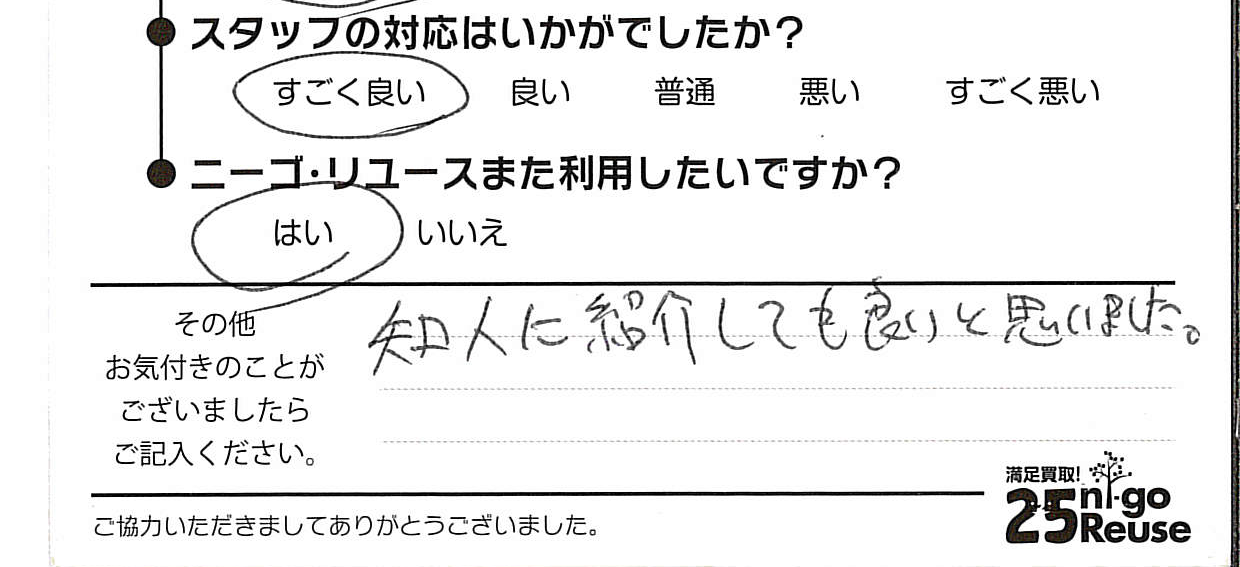 スタッフの対応はいかがでしたか？
すごく良い 良い 普通 悪い すごく悪い
ニーゴ・リユースまた利用したいですか？
はい いいえ
その他
お気付きのことが
ございましたら
ご記入ください。
知人に紹介しても良いと思いました。
満足買取!
25 ni-go
Reuse
ご協力いただきましてありがとうございました。